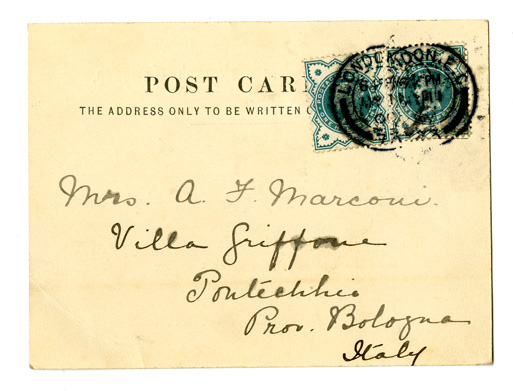 POST CAR
THE ADDRESS ONLY TO BE WRITTEN
LONDON
Mrs. A. F. Marconi.
Villa Griffone
Pontecchio
Prov. Bologna
Italy